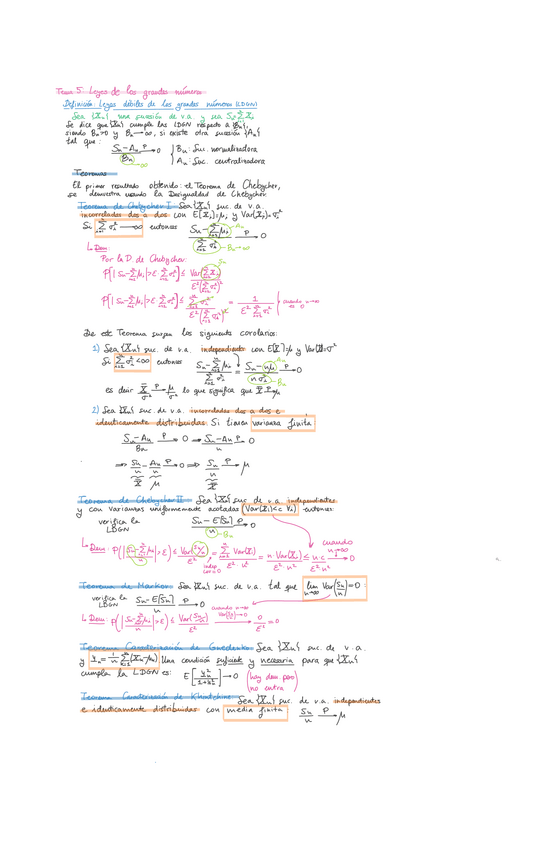 Tema 5: Leyes de los grandes números
Definición: Leyes débiles de los grandes números (LDGN)
Sea {Xn} una sucesión de v.a. y sea Sn=∑Xi
Se dice que {Xn} cumple las LDGN respecto a {Bn},
siendo Bn>0 y Bn→∞, si existe otra sucesión {An}
tal que:
(Sn-An)/Bn P→ 0 { Bn: Suc. normalizadora
An: Suc. centralizadora
Teoremas
El primer resultado obtenido: el Teorema de Chebychev,
se demuestra usando la Desigualdad de Chebychev
Teorema de Chebychev I Sea {Xn} suc. de v.a.
incorreladas dos a dos con E[Xi]=μi y Var(Xi)=σi²
Si ∑σi² → ∞ entonces (Sn-∑μi)/∑σi² P→ 0
Dem:
Por la D. de Chebychev:
P(|Sn-∑μi|>ε·∑σi²) ≤ Var(∑Xi)/(ε²(∑σi²)²)
P(|Sn-∑μi|>ε·∑σi²) ≤ ∑σi²/(ε²(∑σi²)²) = 1/(ε²∑σi²) cuando n→∞ → 0
De este Teorema surgen los siguiente corolarios:
1) Sea {Xn} suc. de v.a. independiente con E[X]=μ y Var(X)=σ²
Si ∑σi²<∞ entonces (Sn-∑μi)/∑σi² = (Sn-nμ)/(nσ²) P→ 0
es decir X̄/σ² P→ μ/σ² lo que significa que X̄ P→ μ
2) Sea {Xn} suc. de v.a. incorreladas dos a dos e
identicamente distribuidas. Si tienen varianza finita
(Sn-An)/Bn P→ 0 ⇒ (Sn-An)/n P→ 0
⇒ Sn/n - An/n P→ 0 ⇒ Sn/n P→ μ
X̄ μ X̄
Teorema de Chebychev II Sea {Xn} suc de v.a independientes
y con varianzas uniformemente acotadas (Var(Xi)<c ∀i) entonces:
verifica la LDGN (Sn-E[Sn])/n P→ 0
Dem: P(|(Sn-∑μi)/n|>ε) ≤ Var(∑Xi/n)/ε² = ∑Var(Xi)/(ε²·n²) = n·Var(Xi)/(ε²·n²) ≤ n·c/(ε²·n²) cuando n→∞ → 0
indep cov=0
Teorema de Markov Sea {Xn} suc. de v.a. tal que lim n→∞ Var(Sn/n)=0
verifica la LDGN (Sn-E[Sn])/n P→ 0
Dem: P(|(Sn-∑μi)/n|>ε) ≤ Var(Sn/n)/ε² cuando n→∞ Var(Sn/n)→0 → 0/ε²=0
Teorema Caracterización de Gnedenko Sea {Xn} suc. de v.a.
y Yn=1/n ∑(Xk-μk) Una condición suficiente y necesaria para que {Xn}
cumpla la LDGN es: E[Yn²/(1+Yn²)] → 0 (hay dem pero
no entra)
Teorema Caracterización de Khintchine Sea {Xn} suc. de v.a. independientes
e identicamente distribuidas con media finita: Sn/n P→ μ